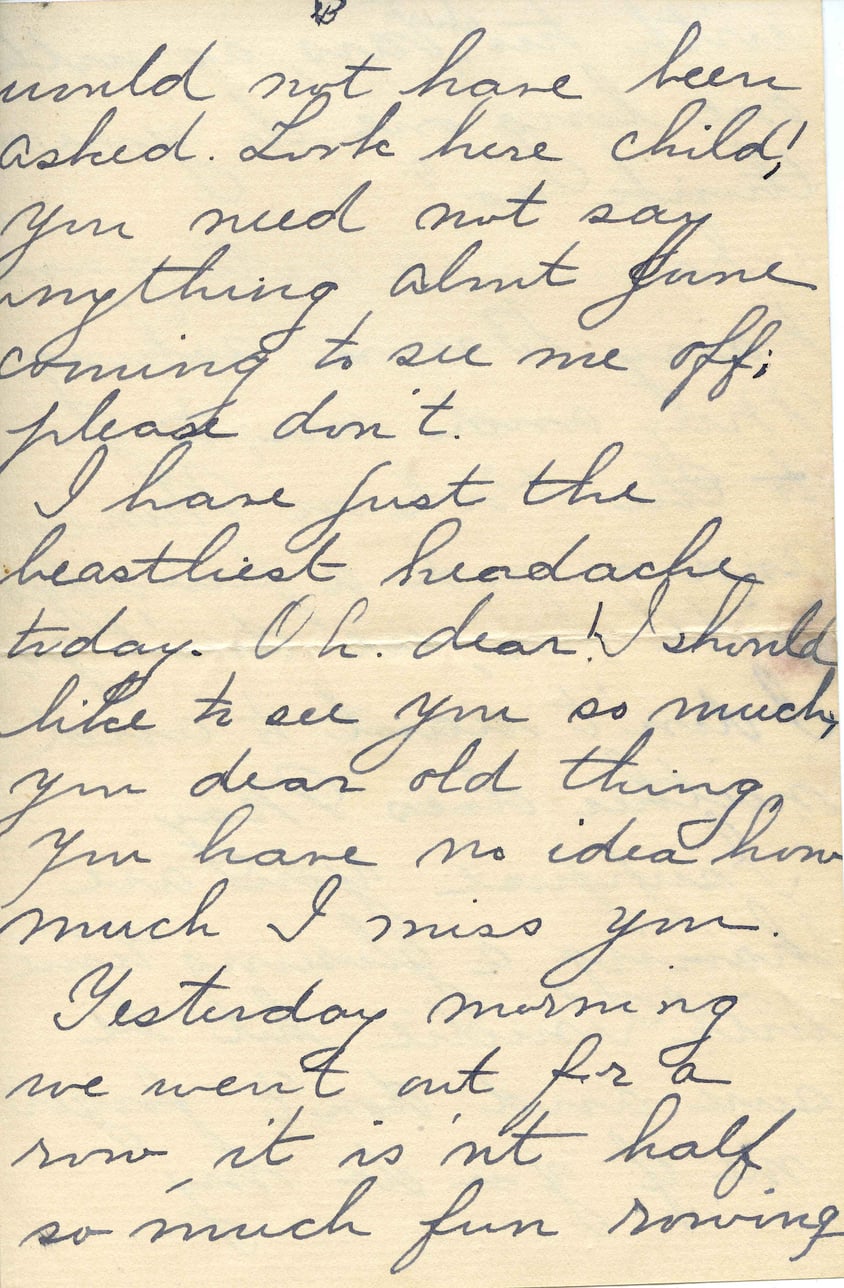 would not have been
asked. Look here child!
you need not say
anything about June
coming to see me off;
please don't.
I have just the
beastliest headache
today. Oh. dear! I should
like to see you so much,
you dear old thing.
You have no idea how
much I miss you.
Yesterday morning
we went out for a
row, it is'nt half
so much fun rowing